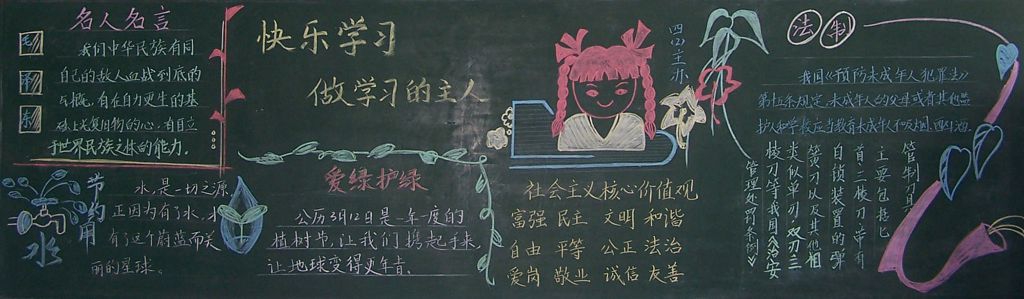 名人名言
毛
泽
东
我们中华民族有同
自己的敌人血战到底的
气概，有在自力更生的基
础上光复旧物的心，有自立
于世界民族之林的能力。
节约用水
水，是一切之源
正因为有了水，才
有了这个蔚蓝而美
丽的星球。
快乐学习
做学习的主人
爱绿护绿
公历3月12日是一年一度的
植树节，让我们携起手来，
让地球变得更年青。
四(4)主办
社会主义核心价值观
富强 民主 文明 和谐
自由 平等 公正 法治
爱岗 敬业 诚信 友善
法制
我国《预防未成年人犯罪法》
第十五条规定，未成年人的父母或者其他监
护人和学校应当教育未成年人不吸烟、酗酒
管制刀具
主要包括匕
首、三棱刀、带有
自锁装置的弹
簧刀以及其他相
类似单刃、双刃三
棱刀等我国《治安
管理处罚条例》